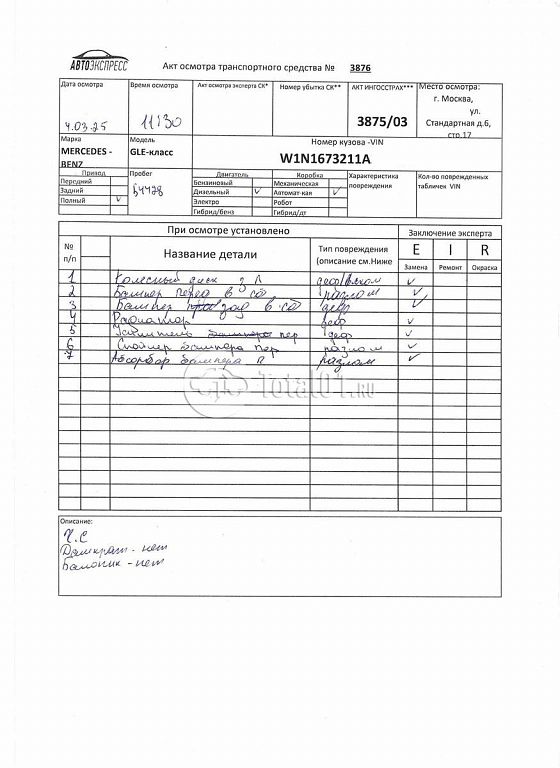 АВТОЭКСПРЕСС
Акт осмотра транспортного средства № 3876
Дата осмотра
4.03.25
Время осмотра
11:30
Акт осмотра эксперта СК*
Номер убытка СК**
АКТ ИНГОССТРАХ***
3875/03
Место осмотра:
г. Москва,
ул.
Стандартная д.6,
стр.17
Марка
MERCEDES -
BENZ
Модель
GLE-класс
Номер кузова -VIN
W1N1673211A
Привод
Передний
Задний
Полный V
Пробег
Двигатель
Бензиновый
Дизельный V
Электро
Гибрид/бенз
Коробка
Механическая
Автомат-кая V
Робот
Гибрид/дт
Характеристика
повреждения
Кол-во поврежденных
табличек VIN
При осмотре установлено
Заключение эксперта
№
п/п
Название детали
Тип повреждения
(описание см.Ниже
E I R
Замена Ремонт Окраска
1 Колесный диск з Л V
2 Бампер перед в сб разлом V
3 Бампер зад в сб деф V
4 Радиатор деф
5 Усилитель бампера пер деф V
6 Спойлер бампера пер разлом V
7 Абсорбер бампера п разлом V
Total01.RU
Описание:
Ч.С
Домкрат - нет
Балоник - нет